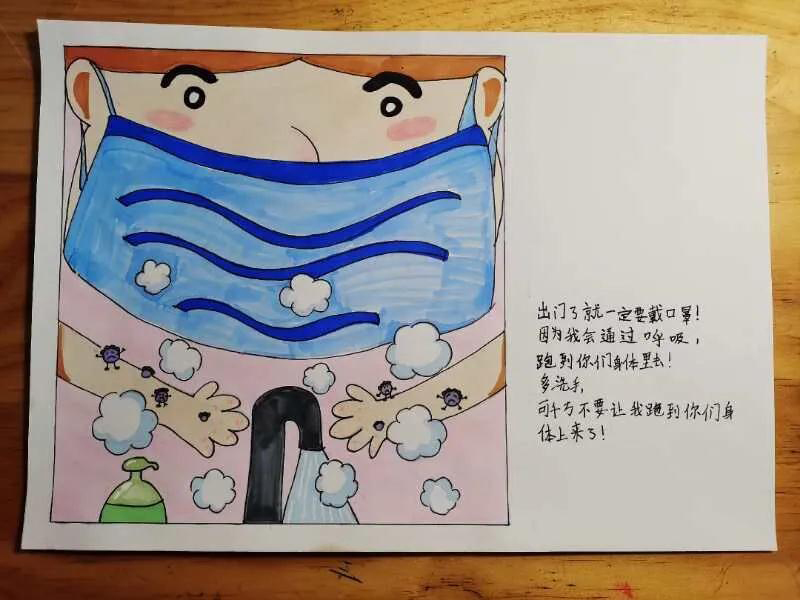 出门了就一定要戴口罩!
因为我会通过呼吸,
跑到你们身体里去!
多洗手,
可千万不要让我跑到你们身
体上来了!